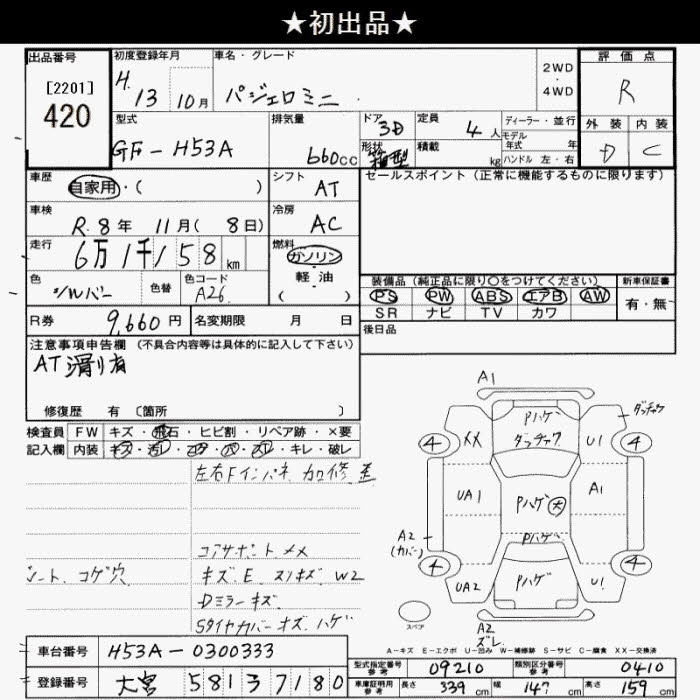 ★初出品★
出品番号 初度登録年月 車名・グレード 評価点
[2201]
420
H. 13 10月 パジェロミニ 2WD・4WD R
型式 排気量 ドア 3D 定員 4人 ディーラー・並行 外装 内装
GF-H53A 660cc 形状 箱型 積載 kg モデル年式 年 ハンドル 左・右 D C
車歴 自家用・( ) シフト AT セールスポイント(正常に機能するものに限ります)
車検 R.8年 11月(8日) 冷房 AC
走行 6万1千158km 燃料 ガソリン・軽油 ( )
色 シルバー 色替 色コード A26
装備品(純正品に限り○をつけてください) 新車保証書
PS PW ABS エアB AW 有・無
SR ナビ TV カワ
R券 9,660円 名変期限 月 日 後日品
注意事項申告欄(不具合内容等は具体的に記入して下さい)
AT滑り有
修復歴 有〔箇所 〕
検査員 FW キズ・飛石・ヒビ割・リペア跡・×要
記入欄 内装 キズ・汚レ・コゲ・穴・スレ・キレ・破レ
左右Fインパネ 加修歪
コアサポートメメ
シート コゲ穴 キズ・E スリキズ W2
Dミラーキズ
SタイヤカバーキズハゲA1
Pハゲ ダッチャク ダッチャク
4 XX U1 4
UA1 Pハゲ 大 A1
A2 (カバー) Pハゲ
4 UA2 Pハゲ U1 4
スペア A2 ズレ
A-キズ E-エクボ U-凹み W-補修跡 S-サビ C-腐食 XX-交換済
車台番号 H53A-0300333
型式指定番号 参考 09210 類別区分番号 参考 0410
登録番号 大宮 581 3 7180
車庫証明用 参考 長さ 339cm 幅 147cm 高さ 159cm